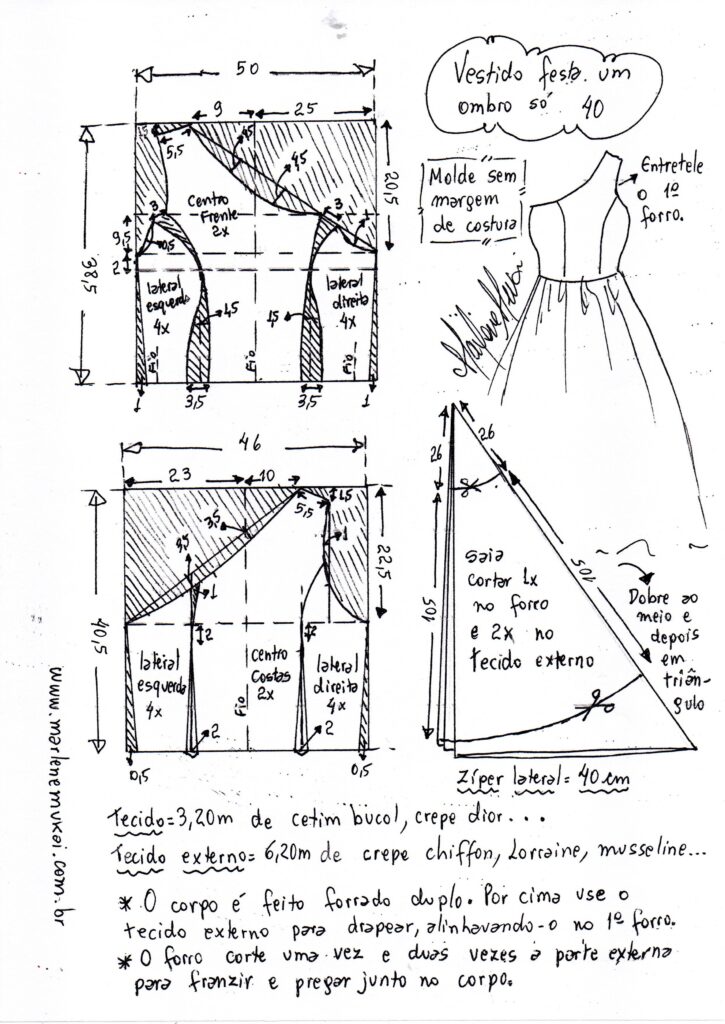 50
9
25
5,5
4,5
4,5
20,5
38,5
Centro
Frente
2x
3
3
9,5
0,5
2
lateral
esquerda
4x
lateral
direita
4x
1,5
1,5
Fio
Fio
Fio
1
3,5
3,5
1
Vestido festa um
ombro só 40
Molde sem
margem
de costura
Entretele
o 1º
forro.
46
23
10
1,5
5,5
3,5
3,5
1
1
22,5
40,5
2
2
lateral
esquerda
4x
centro
Costas
2x
lateral
direita
4x
Fio
0,5
2
2
0,5
26
26
105
105
saia
cortar 1x
no forro
e 2x no
tecido externo
Dobre ao
meio e
depois
em
triân-
gulo
Zíper lateral = 40 cm
www.marlenemukai.com.br
Tecido = 3,20m de cetim bucol, crepe dior...
Tecido externo = 6,20m de crepe chiffon, Lorraine, musseline...
* O corpo é feito forrado duplo. Por cima use o
tecido externo para drapear, alinhavando-o no 1º forro.
* O forro corte uma vez e duas vezes a parte externa
para franzir e pregar junto no corpo.